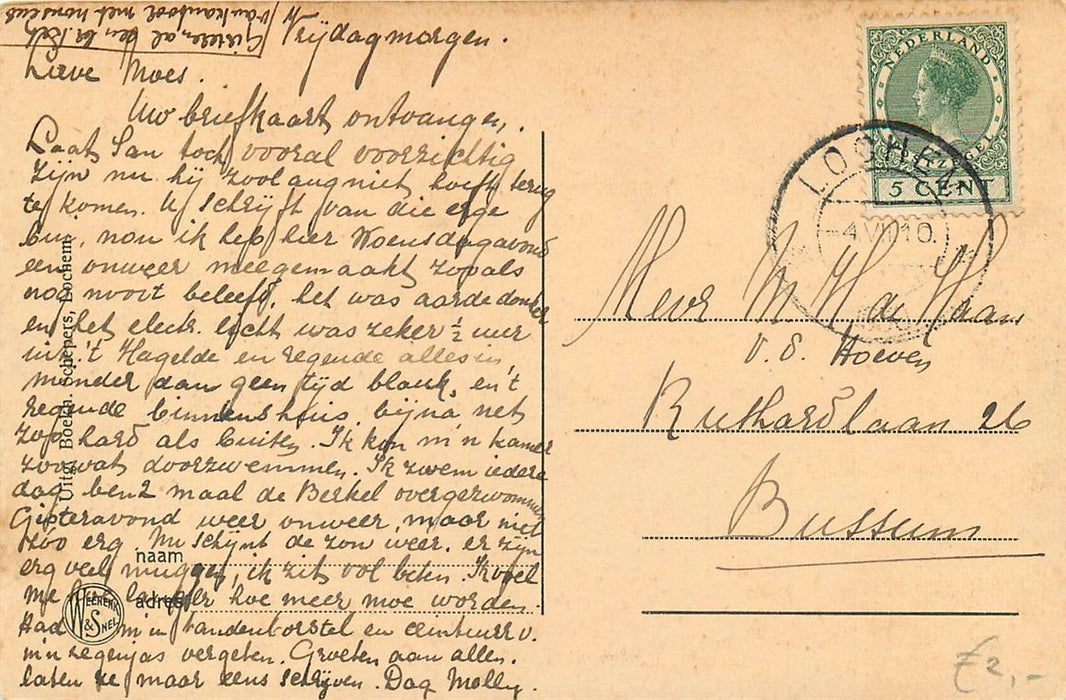 Vrijdagmorgen.
Lieve Moes.
Uw briefkaart ontvangen.
Laat San toch vooral voorzichtig
zijn nu hij zoo lang niet hoeft terug
te komen. U schrijft van die erge
bui, nou ik heb hier Woensdagavond
een onweer meegemaakt zooals
nog nooit beleefd, het was aardedonker
en het electr. licht was zeker ½ uur
uit. 't Hagelde en regende alles in
minder dan geen tijd blank, en 't
regende binnenshuis bijna net
zoo hard als buiten. Ik kon m'n kamer
zoowat doorzwemmen. Ik zwem iedere
dag ben 2 maal de Berkel overgezwommen
Gisteravond weer onweer, maar niet
zoo erg. Nu schijnt de zon weer. er zijn
erg veel muggen, ik zit vol beten. Ik voel
me hoe langer hoe meer moe worden.
Had m'n tandenborstel en ceintuur v.
m'n regenjas vergeten. Groeten aan allen.
laten ze maar eens schrijven. Dag Molly.
Uitg. Boekh. Schepers, Lochem.
naam
adres
WEENENK
& SNEL
NEDERLAND
POSTZEGEL
5 CENT
LOCHEM
-4 VII 10.
Mevr M H de Haan
v. d. Hoeven
Ruthardlaan 26
Bussum
€ 2,-